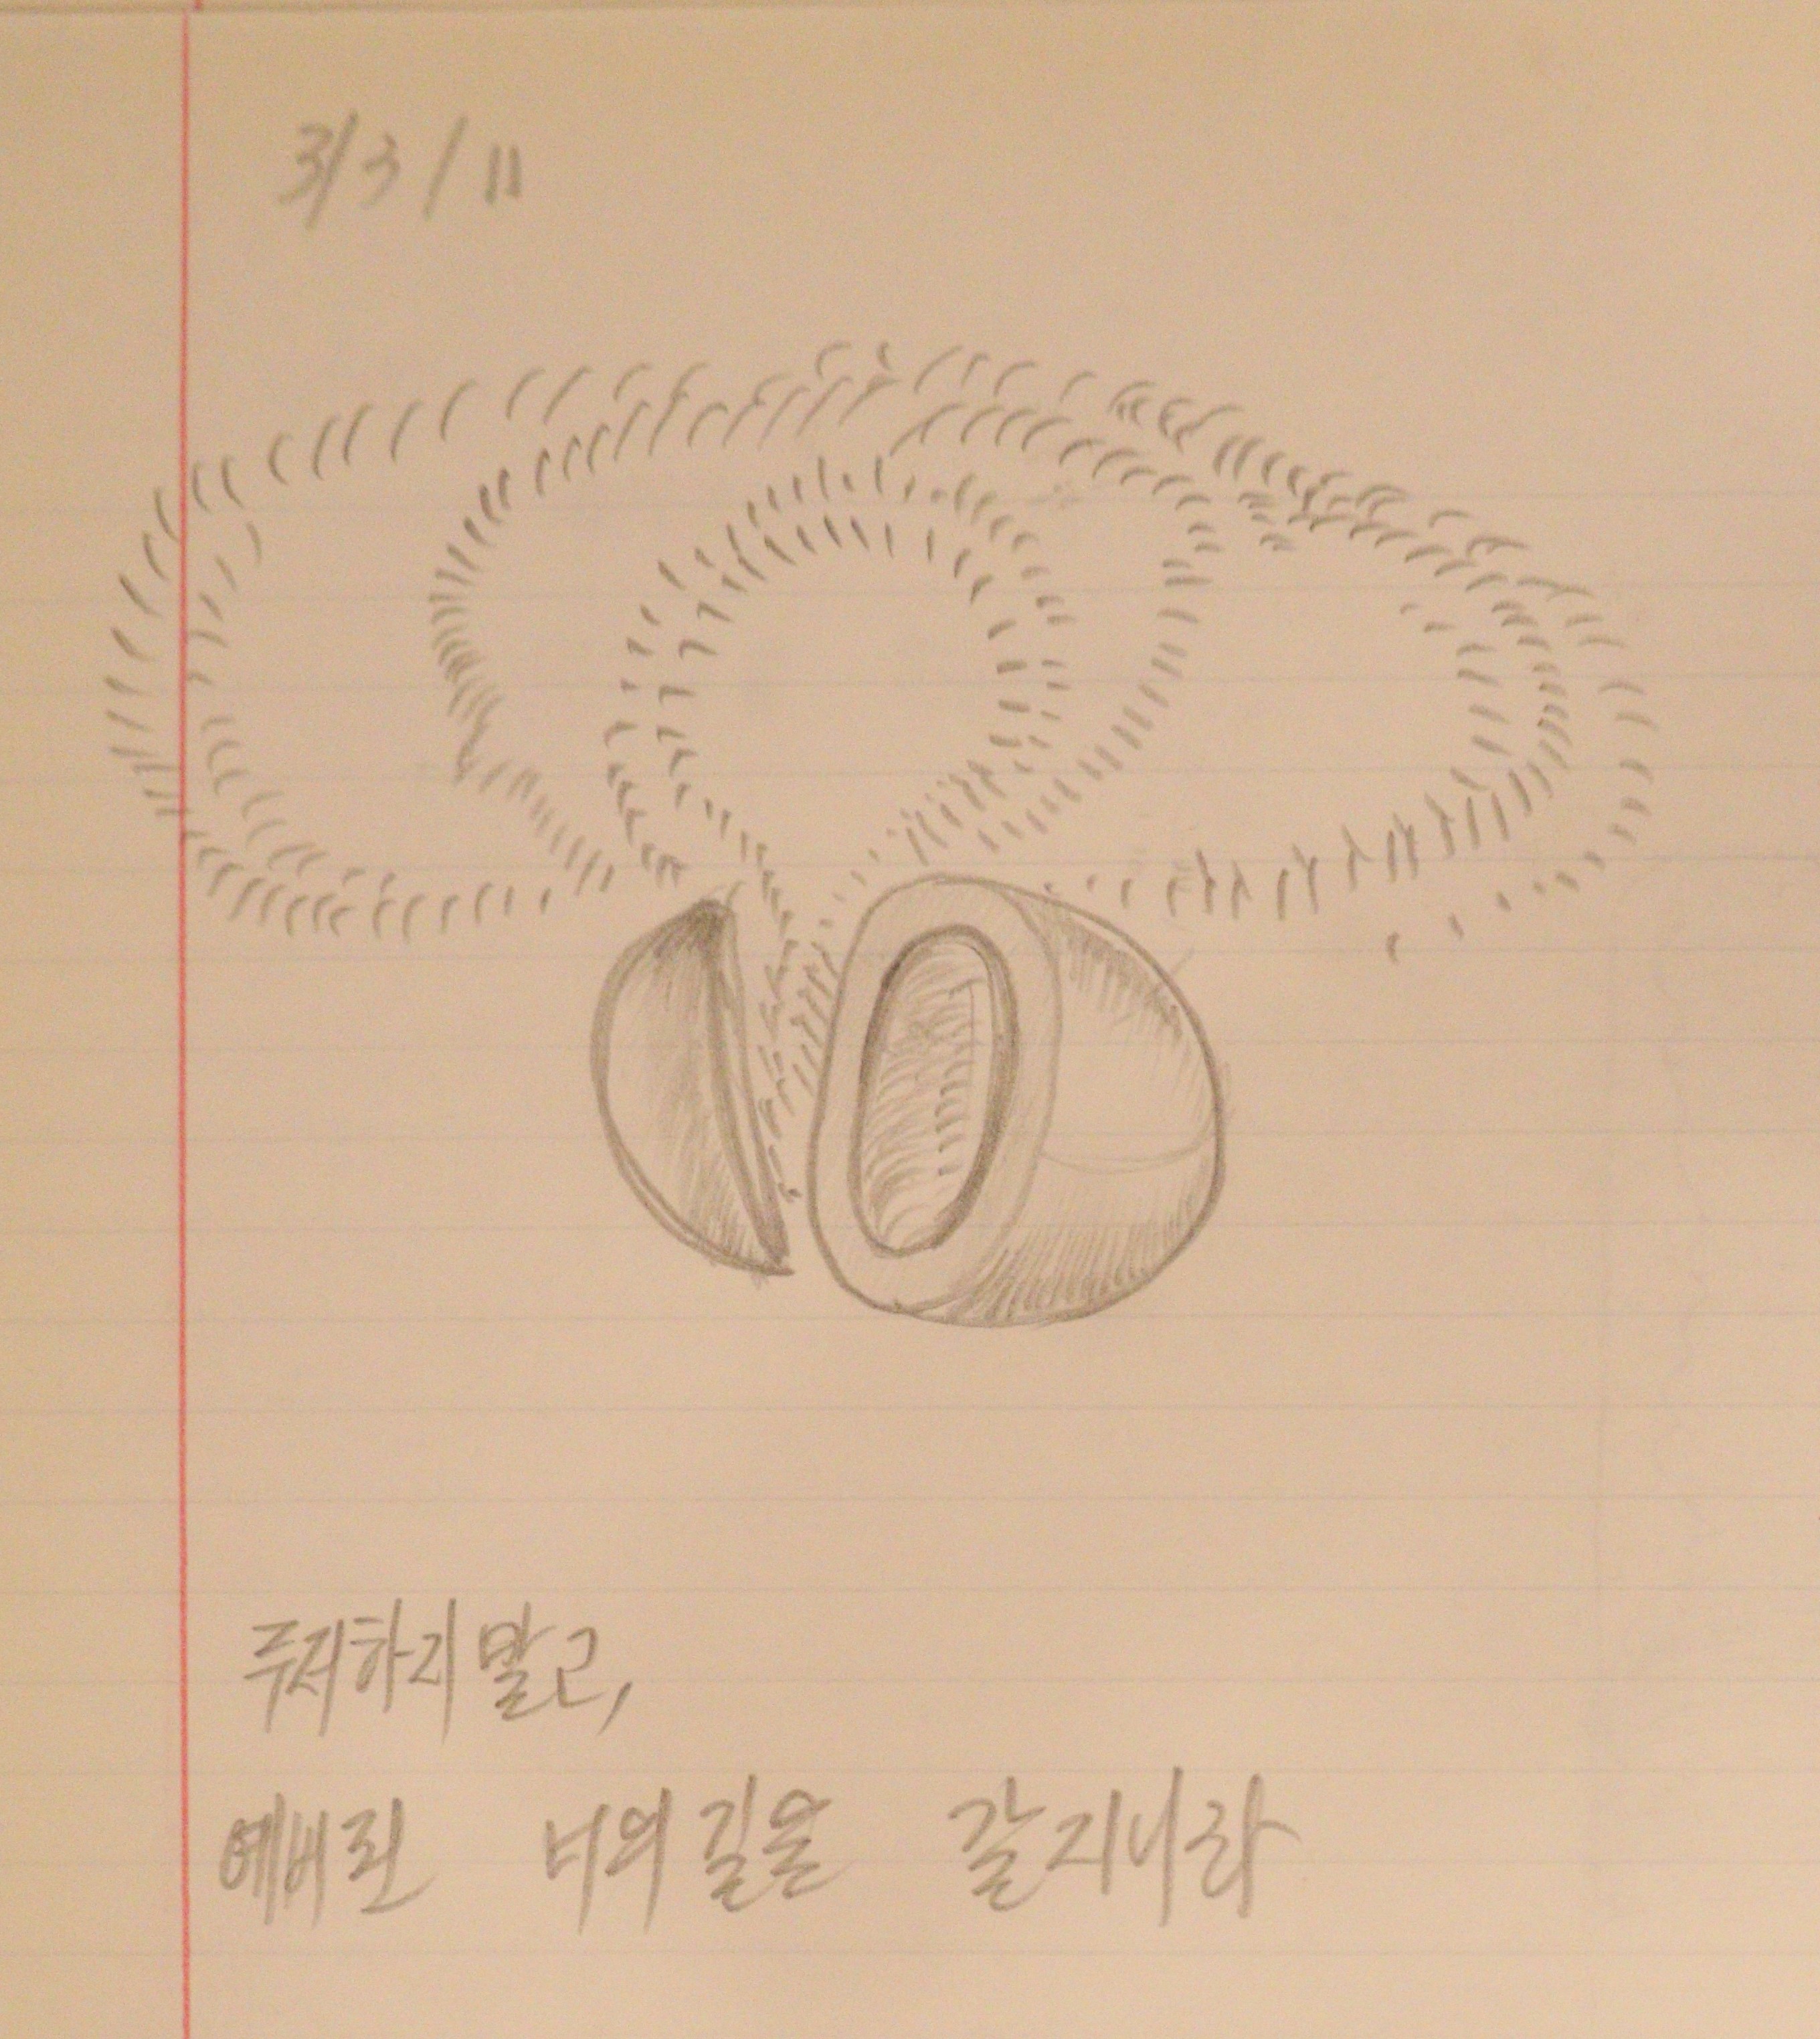 3/3/11
주저하지 말고,
예비된 너의 길을 갈지니라